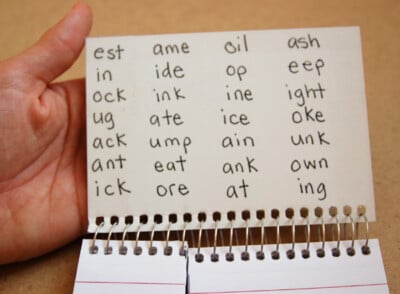 est ame oil ash
in ide op eep
ock ink ine ight
ug ate ice oke
ack ump ain unk
ant eat ank own
ick ore at ing